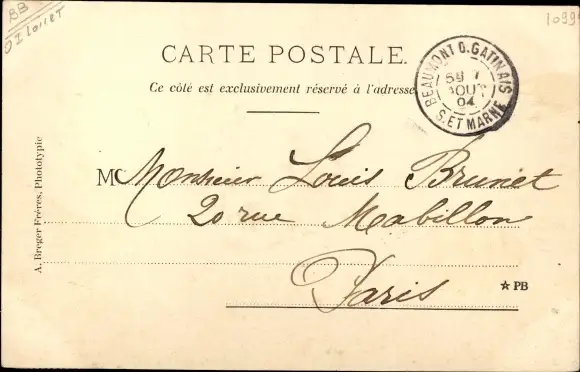 BB
CARTE POSTALE.
Ce côté est exclusivement réservé à l'adresse
BEAUMONT D. GATINAIS
AOUT
04
S. ET MARNE
M Monsieur Louis Brunet
20 rue Mabillon
Paris
PB
A. Breger Frères, Phototypie